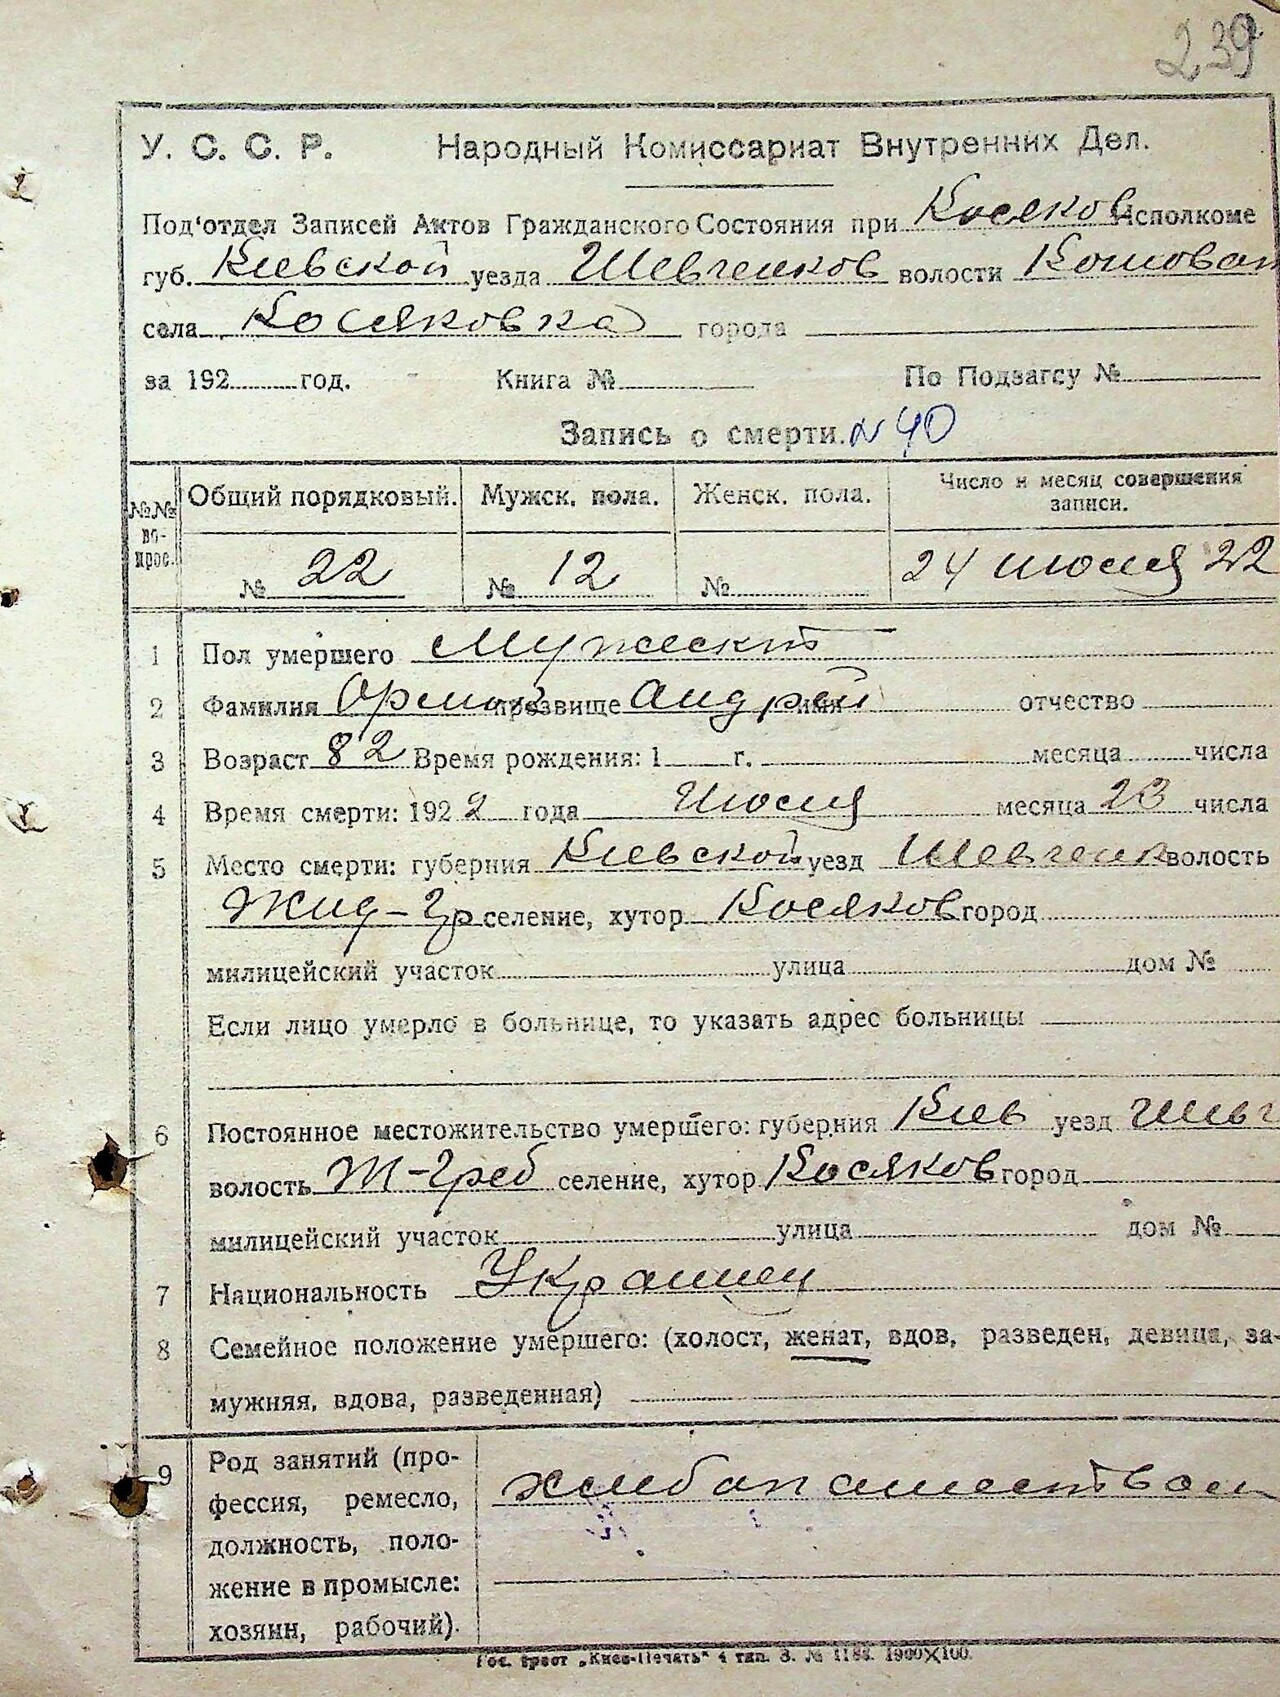 239
У. С. С. Р. Народный Комиссариат Внутренних Дел.
Под'отдел Записей Актов Гражданского Состояния при Косяков Исполкоме
губ. Киевской уезда Шевченков волости
села Косяковка города
за 192 год. Книга № По Подзагсу №
Запись о смерти. N 40
№№ вопрос. Общий порядковый. Мужск. пола. Женск. пола. Число и месяц совершения записи.
№ 22 № 12 № 24 июля 22
1 Пол умершего Мужеский
2 Фамилия прозвище Андрей имя отчество
3 Возраст 82 Время рождения: 1 г. месяца числа
4 Время смерти: 1922 года Июля месяца 23 числа
5 Место смерти: губерния Киевской уезд Шевченк волость
Жид-Гр селение, хутор Косяков город
милицейский участок улица дом №
Если лицо умерло в больнице, то указать адрес больницы
6 Постоянное местожительство умершего: губерния Киев уезд Шевч
волость Ж-Греб селение, хутор Косяков город
милицейский участок улица дом №
7 Национальность Украинец
8 Семейное положение умершего: (холост, женат, вдов, разведен, девица, за-
мужняя, вдова, разведенная)
9 Род занятий (про-
фессия, ремесло,
должность, поло-
жение в промысле:
хозяин, рабочий).
Гос. трест „Киев-Печать" 4 тип. З. № 1188. 1900×100.